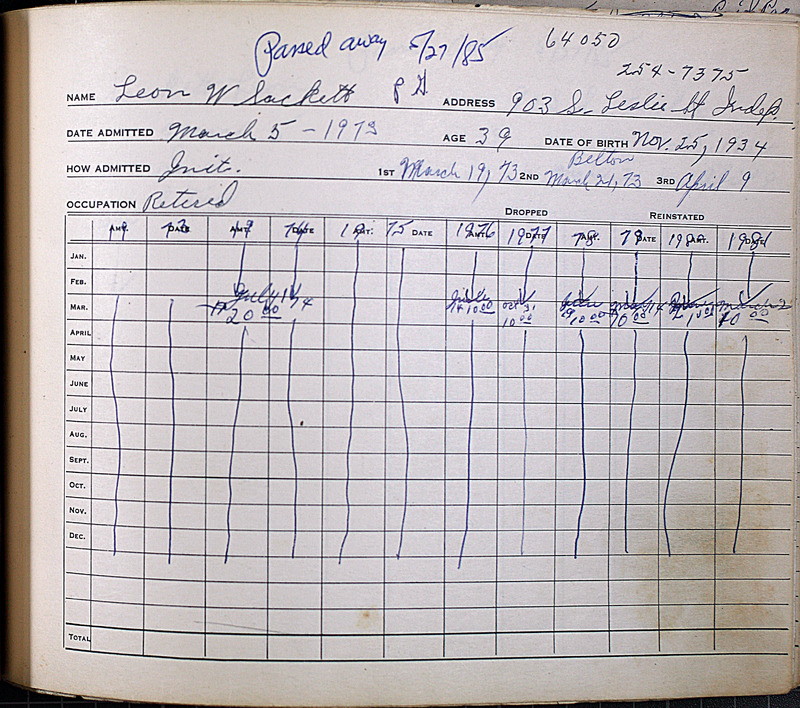 Passed away 5/27/85
64050
254-7375
NAME Leon W Sackett P G. ADDRESS 903 S. Leslie St Indep.
DATE ADMITTED March 5 - 1973 AGE 39 DATE OF BIRTH Nov. 25, 1934
Belton
HOW ADMITTED Init. 1ST March 19, 73 2ND March 21, 73 3RD April 9
OCCUPATION Retired
DROPPED REINSTATED
AMT. DATE AMT. DATE AMT. DATE AMT. DATE AMT. DATE AMT. DATE
19 73 19 74 19 75 1976 1977 78 79 1980 1981
JAN.
FEB.
July 11 74
MAR. 20 00 10 00 Oct 31 10 00 10 00 May 14 10 00 March 2 10 00
APRIL
MAY
JUNE
JULY
AUG.
SEPT.
OCT.
NOV.
DEC.
TOTAL